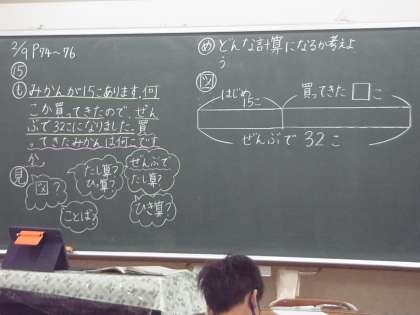 2/9 P74~76
⑮
も みかんが15こあります。何
こか買ってきたので、ぜん
ぶで32こになりました。買
ってきたみかんは何こです
か。
見
図?
たし算?
ひき算?
ぜんぶで
たし算?
ことば?
ひき算?
め どんな計算になるか考えよ
う
図
はじめ
15こ
買ってきた□こ
ぜんぶで 32こ